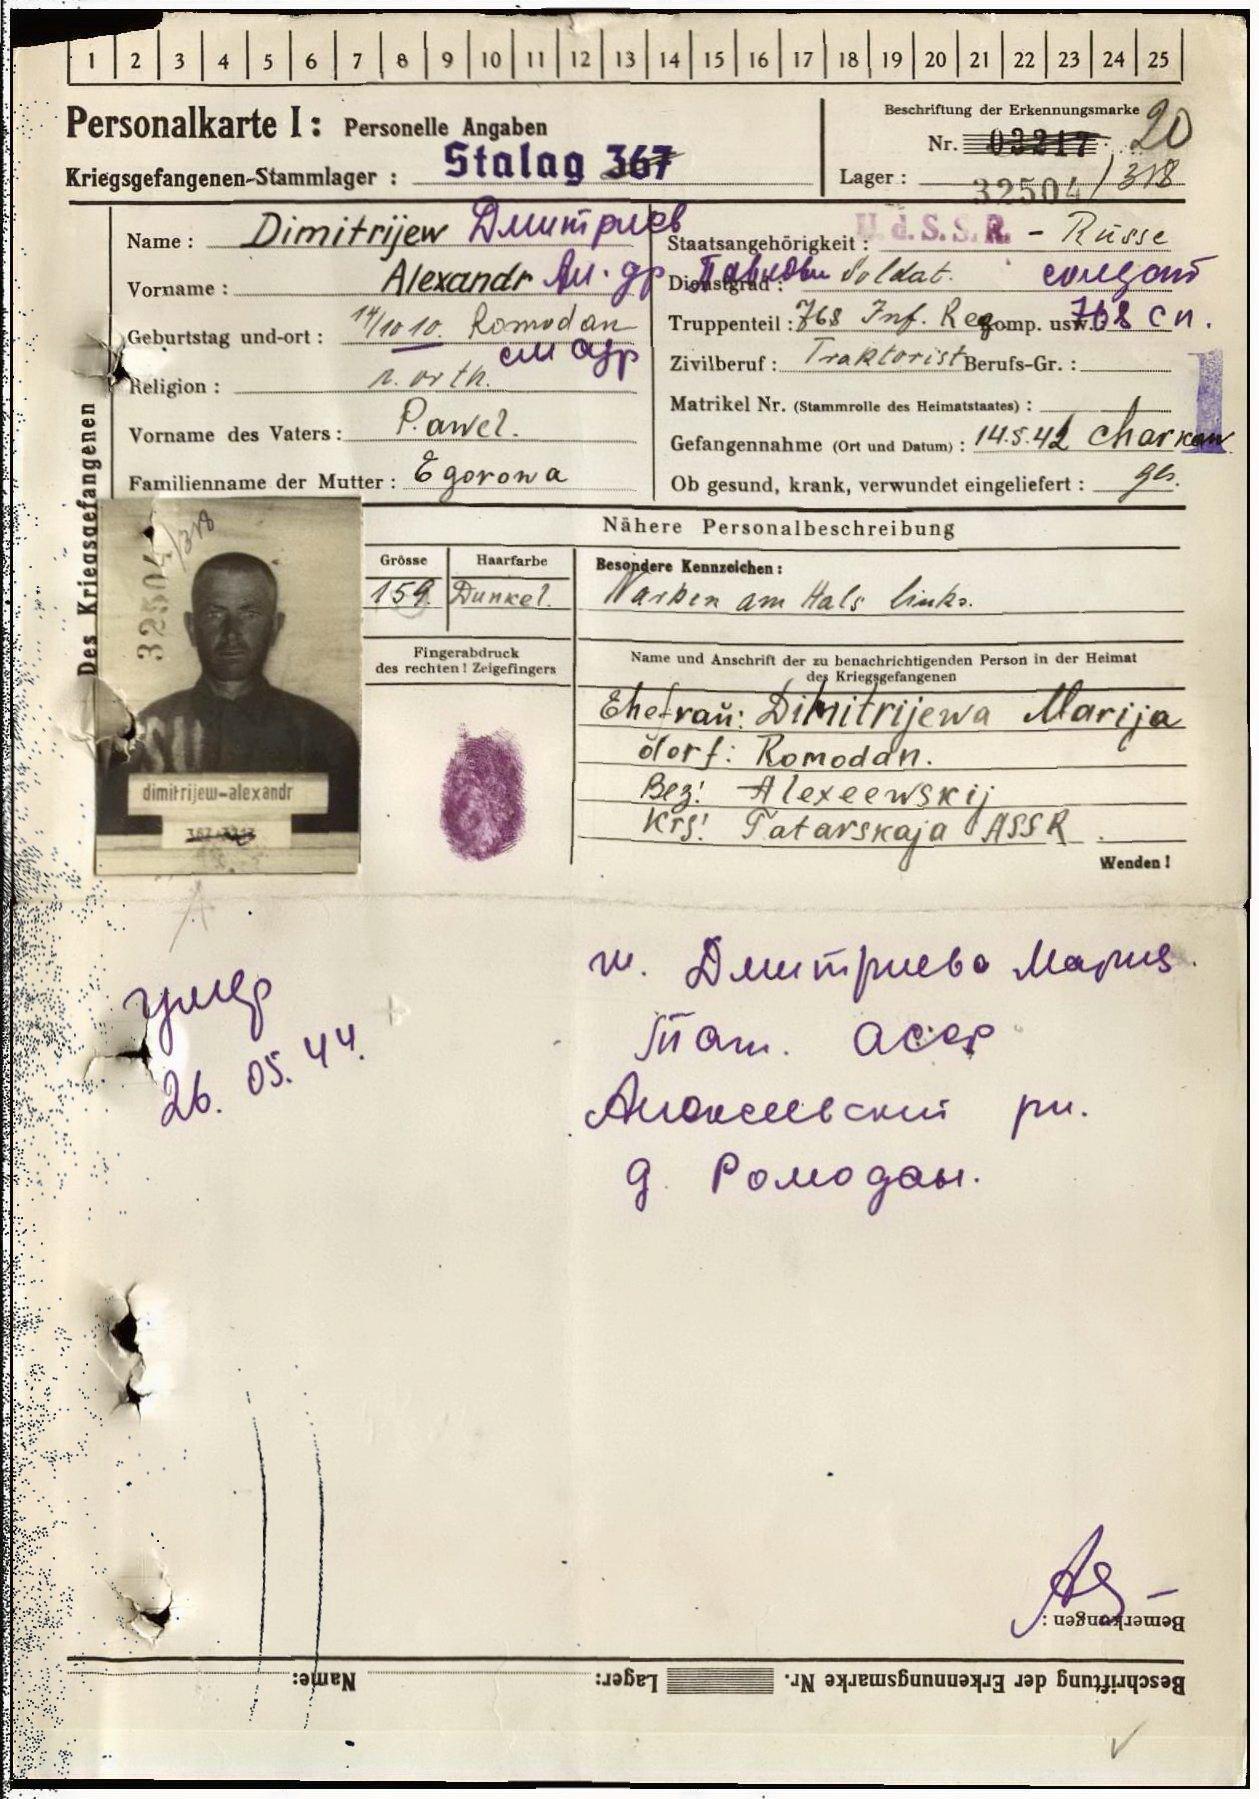 1 2 3 4 5 6 7 8 9 10 11 12 13 14 15 16 17 18 19 20 21 22 23 24 25
Personalkarte I: Personelle Angaben
Kriegsgefangenen-Stammlager: Stalag 367
Beschriftung der Erkennungsmarke
Nr. 03217 20
Lager: 32504/318
Des Kriegsgefangenen
Name: Dimitrijew Дмитриев
Vorname: Alexandr Ал-др Павлови
Geburtstag und-ort: 14/10 10. Romodan
см адр
Religion: r. orth.
Vorname des Vaters: Pawel.
Familienname der Mutter: Egorowa
Staatsangehörigkeit: U.d.S.S.R. - Russe
Dienstgrad: Soldat. солдат
Truppenteil: 768 Inf. Reg Komp. usw. 768 сп.
Zivilberuf: Traktorist Berufs-Gr.:
Matrikel Nr. (Stammrolle des Heimatstaates):
Gefangennahme (Ort und Datum): 14.5.42 Charkow
Ob gesund, krank, verwundet eingeliefert: ges.
32504/318
dimitrijew-alexandr
Nähere Personalbeschreibung
Grösse Haarfarbe
159. Dunkel.
Besondere Kennzeichen:
Narben am Hals links.
Fingerabdruck
des rechten! Zeigefingers
Name und Anschrift der zu benachrichtigenden Person in der Heimat
des Kriegsgefangenen
Ehefrau: Dimitrijewa Marija
dorf: Romodan.
Bez: Alexeewskij
Krs: Tatarskaja ASSR.
Wenden!
умер
26. 05. 44.
ж. Дмитриева Мария.
Тат. АССР
Алексеевский рн.
д. Ромодан.
Bemerkungen:
Beschriftung der Erkennungsmarke Nr. Lager: Name: